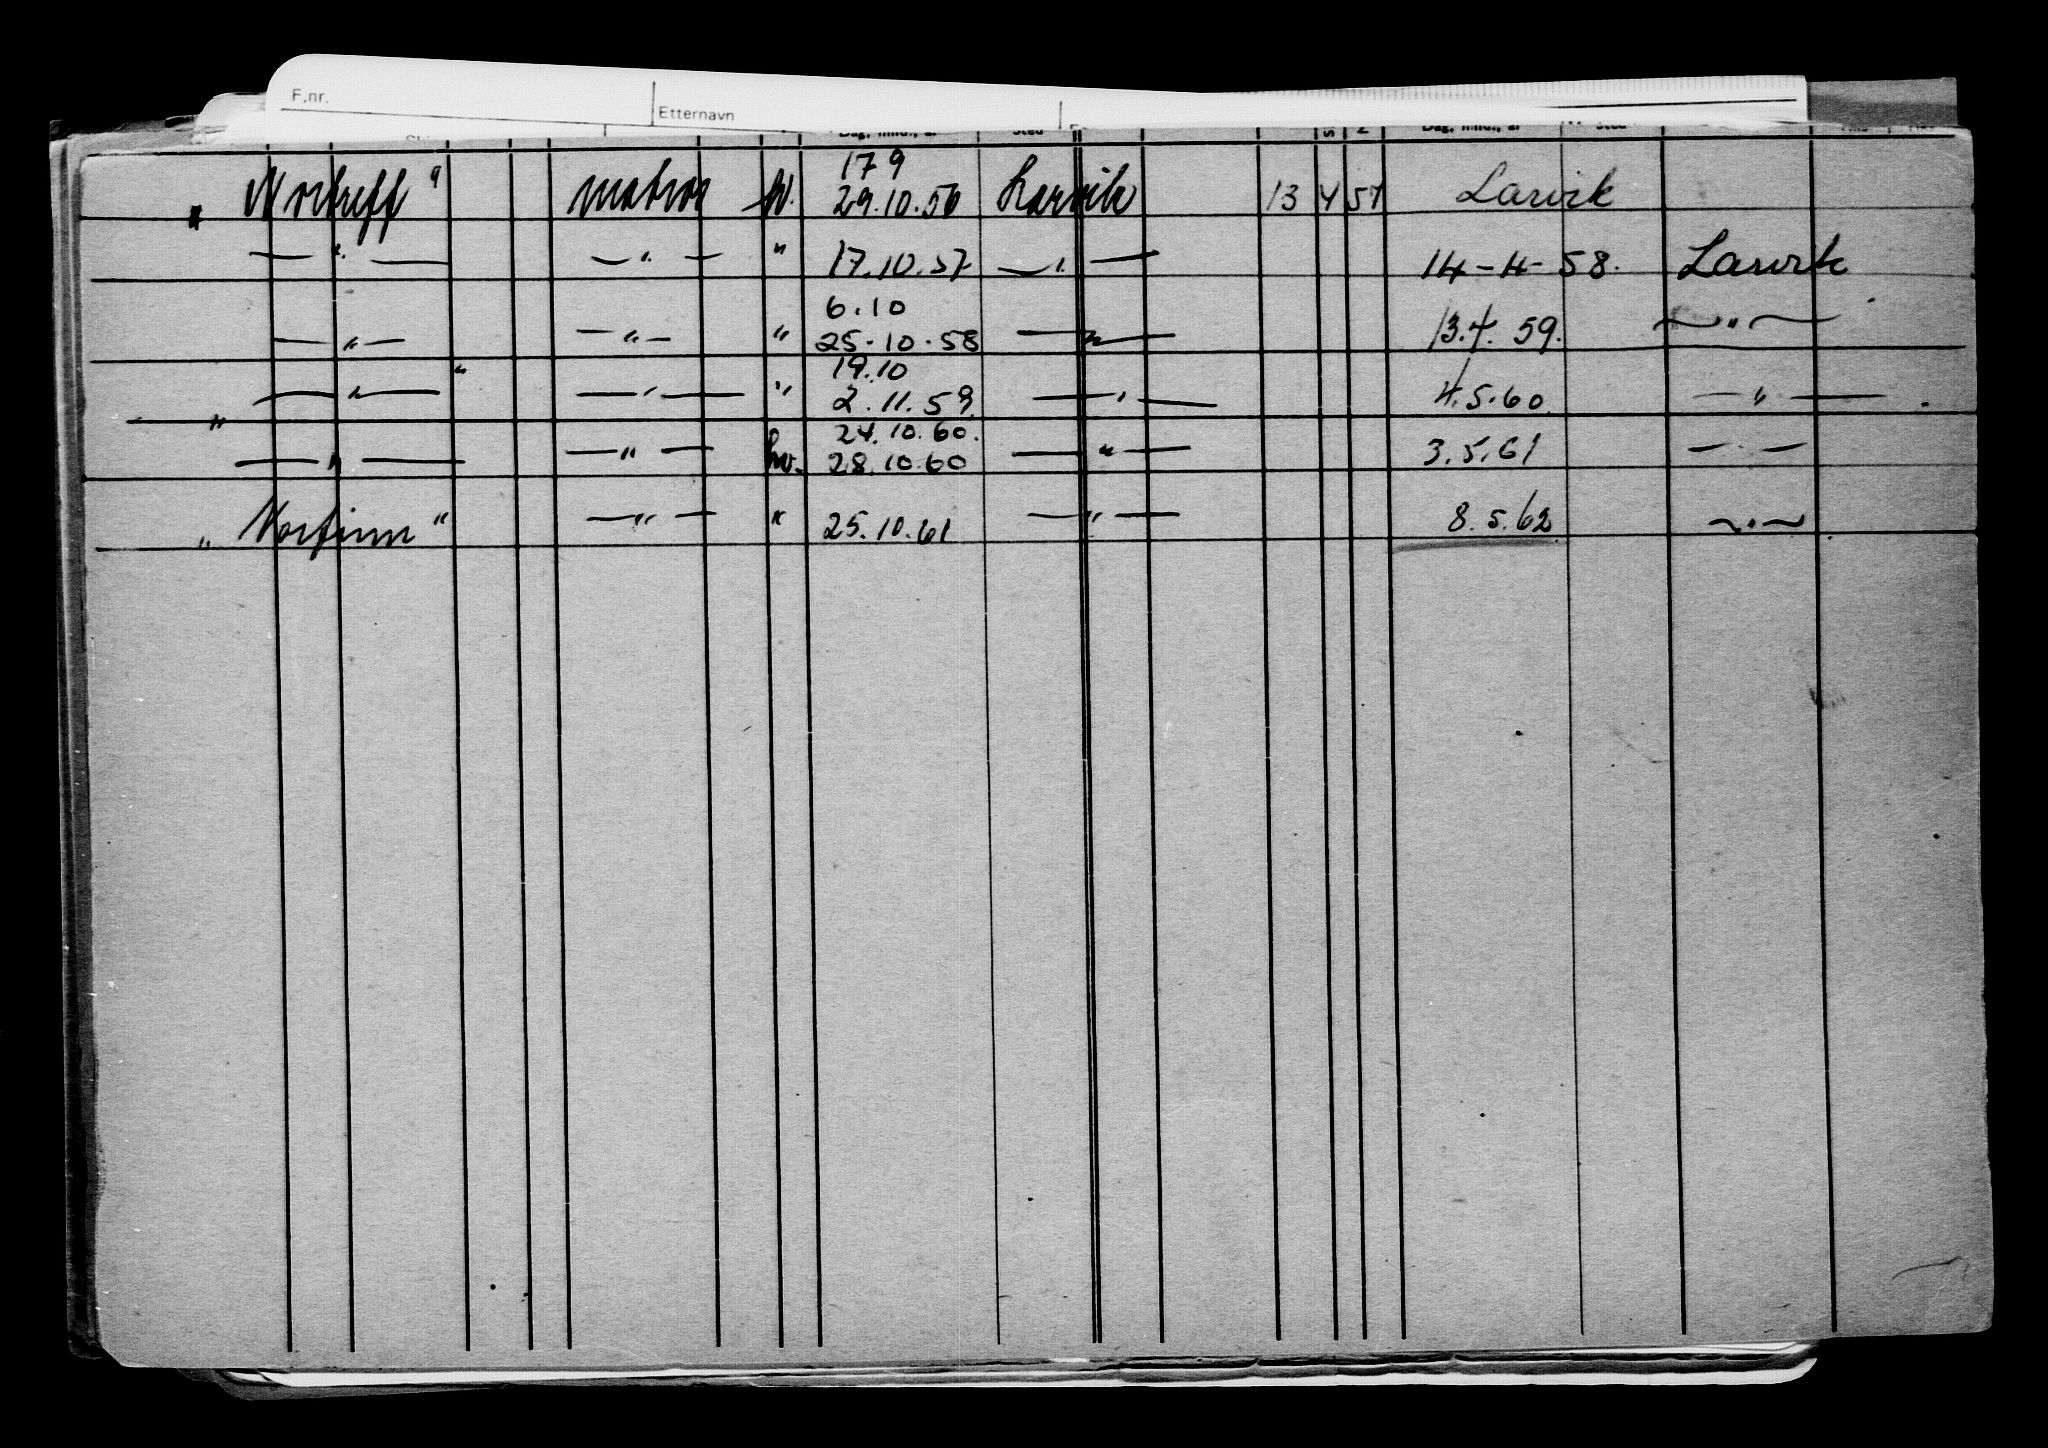 F.nr.
Etternavn
Dag, mnd., år Sted S N Dag, mnd., år Sted
17 9
" Nortreff " matros hv. 29.10.56 Larvik 13 4 57 Larvik
— " — — " — " 17.10.57 — " — 14-4-58. Larvik
6.10
— " — — " — " 25-10-58 — " — 13.4.59. — " —
19.10
— " — " — " — " 2.11.59 — " — 4.5.60 — " —
24.10.60.
" — " — — " — hv. 28.10.60 — " — 3.5.61 — " —
" Norfinn " — " — " 25.10.61 — " — 8.5.62 — " —